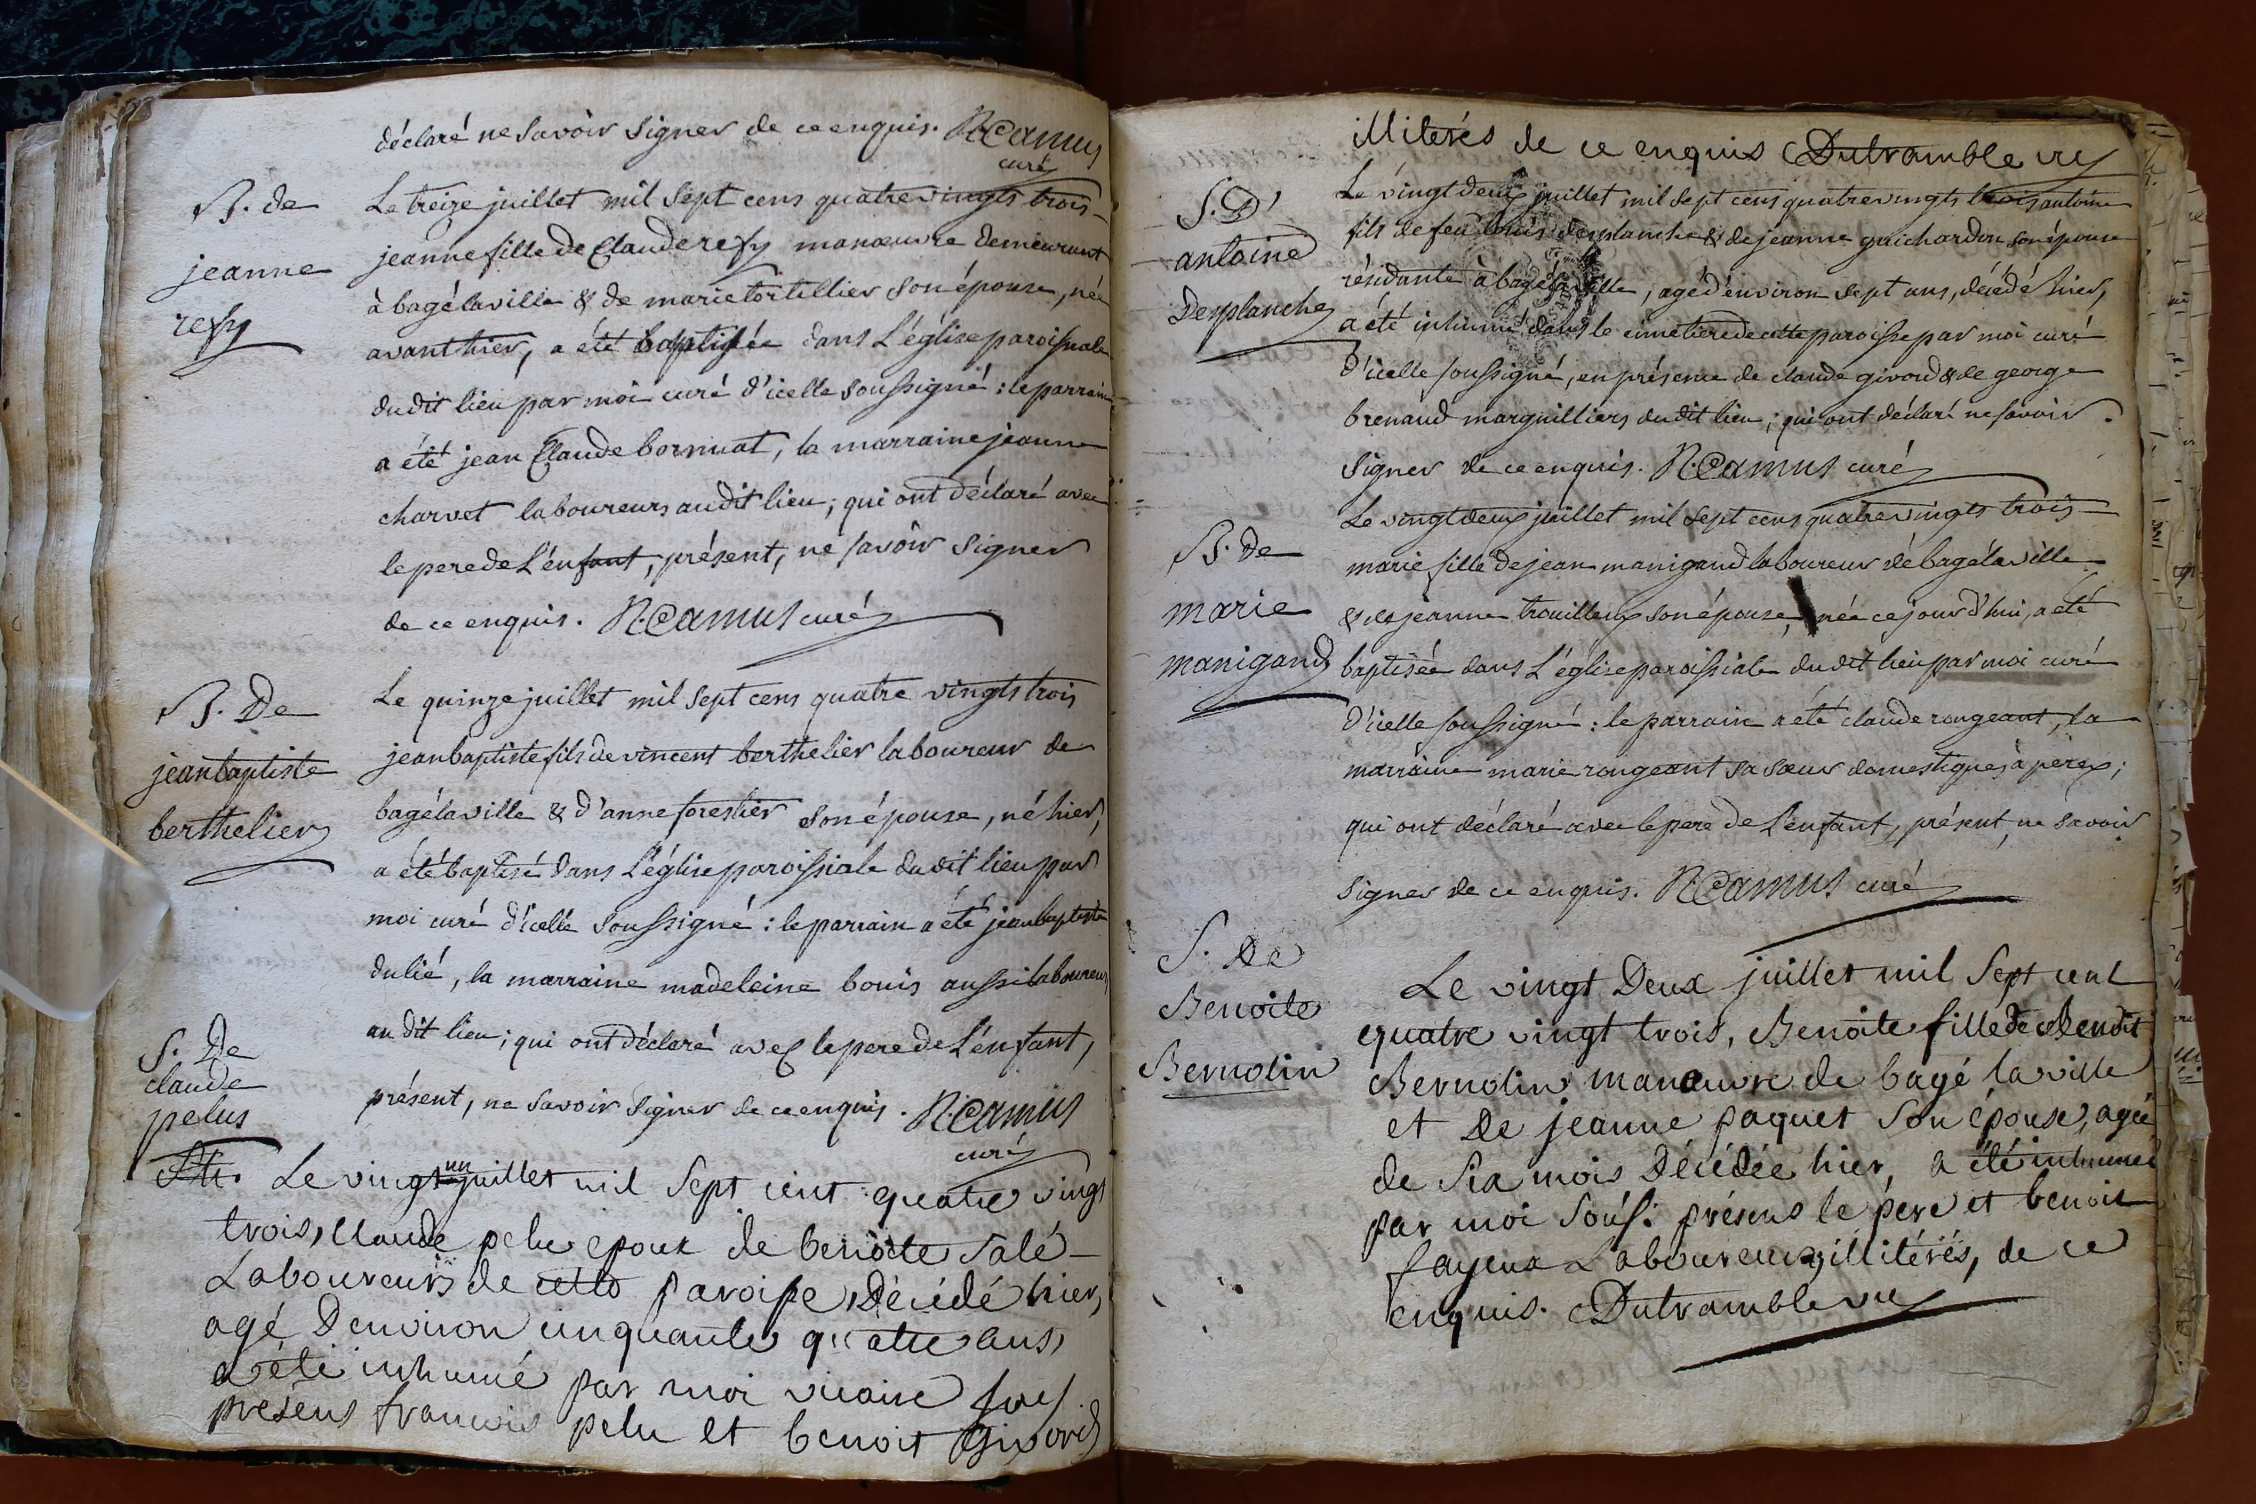 déclaré ne savoir signer de ce enquis. N. Camus
curé
B. de
jeanne
resy
Le treize juillet mil sept cens quatre vingts trois
jeanne fille de Claude resy manœuvre demeurant
à bagélaville & de marie tortillier son épouse, née
avant hier, a été baptisée dans L'église paroissiale
du dit lieu par moi curé d'icelle soussigné : le parrain
a été jean Claude bornuat, la marraine jeanne
charvet laboureurs au dit lieu ; qui ont déclaré avec
le pere de L'enfant, présent, ne savoir signer
de ce enquis. N. Camus curé
B. De
jean baptiste
berthelier
Le quinze juillet mil sept cens quatre vingts trois
jean baptiste fils de vincent berthelier laboureur de
bagélaville & d'anne forestier son épouse, né hier,
a été baptisé dans L'église paroissiale du dit lieu par
moi curé d'icelle soussigné : le parrain a été jean baptiste
dulié, la marraine madeleine bouis aussi laboureurs
au dit lieu ; qui ont déclaré avec le pere de L'enfant,
présent, ne savoir signer de ce enquis. N. Camus
curé
S. De
claude
pelus
Le vingt un juillet mil sept cent quatre vingt
trois, claude pelu epoux de benoite salé
Laboureurs de cette paroisse, Décédé hier,
agé D'environ cinquante quatre ans,
a été inhumé par moi vicaire sous
présens francois pelu et benoit Givord
illiterés de ce enquis Dutramble vic
S. D'
antoine
Desplanche
Le vingt deux juillet mil sept cens quatre vingts trois antoine
fils de feu Louis desplanche & de jeanne guichardon son épouse
résidante à bagélaville, agé d'environ sept ans, décédé hier,
a été inhumé dans le cimetiere de cette paroisse par moi curé
d'icelle soussigné, en présence de claude givord & de george
brenaud marguilliers du dit lieu ; qui ont déclaré ne savoir
signer de ce enquis. N. Camus curé
B. De
marie
manigand
Le vingt deux juillet mil sept cens quatre vingts trois
marie fille de jean manigand laboureur de bagélaville
& de jeanne trouilleux son épouse, née ce jourd'hui, a été
baptisée dans L'église paroissiale du dit lieu par moi curé
d'icelle soussigné : le parrain a été claude rongeant, la
marraine marie rongeant sa sœur domestiques à perex ;
qui ont déclaré avec le pere de L'enfant, présent, ne savoir
signer de ce enquis. N. Camus curé
S. De
Benoite
Bernolin
Le vingt Deux juillet mil sept cent
quatre vingt trois, Benoite fille de Benoit
Bernolin manœuvre de bagé la ville
et De jeanne paquet son épouse, agée
de six mois Décédée hier, a été inhumée
par moi souss: présens le père et benoit
fayeux Laboureurs, illitérés, de ce
enquis. Dutramble vic